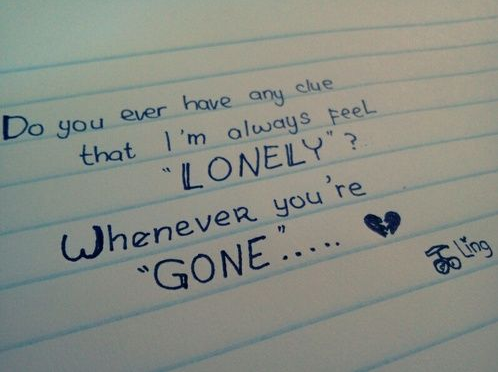 Do you ever have any clue
that I'm always FeeL
"LONELY"?
WheneveR you're
"GONE".....
Ling